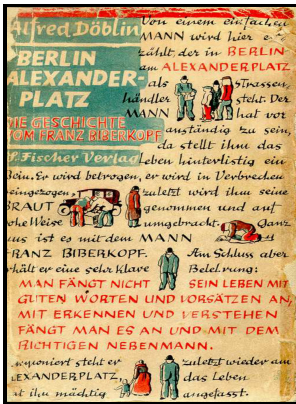 Alfred Döblin
BERLIN
ALEXANDER-
PLATZ
DIE GESCHICHTE
VOM FRANZ BIBERKOPF
S. Fischer Verlag
Von einem einfachen
MANN wird hier er
zählt, der in BERLIN
am ALEXANDERPLATZ
als Strassen
händler steht. Der
MANN hat vor
anständig zu sein,
da stellt ihm das
Leben hinterlistig ein
Bein. Er wird betrogen, er wird in Verbrechen
eingezogen, zuletzt wird ihm seine
BRAUT genommen und auf
rohe Weise umgebracht. Ganz
aus ist es mit dem MANN
FRANZ BIBERKOPF. Am Schluss aber
erhält er eine sehr klare Belehrung:
MAN FÄNGT NICHT SEIN LEBEN MIT
GUTEN WORTEN UND VORSÄTZEN AN,
MIT ERKENNEN UND VERSTEHEN
FÄNGT MAN ES AN UND MIT DEM
RICHTIGEN NEBENMANN.
steht er zuletzt wieder am
ALEXANDERPLATZ, das Leben
hat ihn mächtig angefasst.